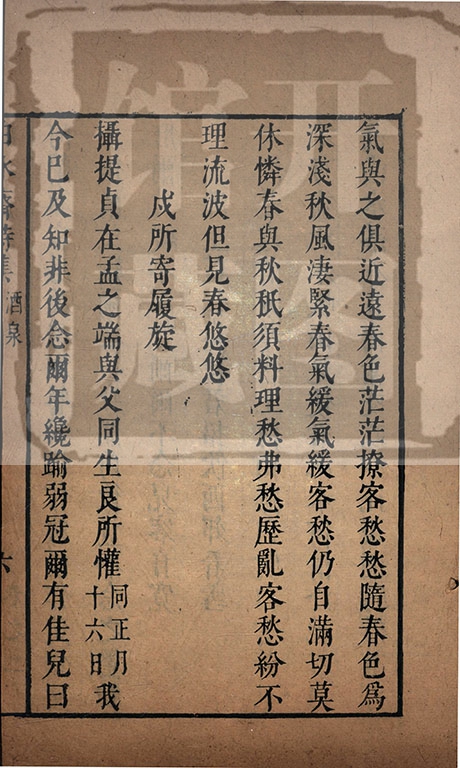 氣與之俱近遠春色茫茫撩客愁愁隨春色爲
深淺秋風凄緊春氣緩氣緩客愁仍自滿切莫
休憐春與秋秖須料理愁弗愁歷亂客愁紛不
理流波但見春悠悠
戍所寄履旋
攝提貞在孟之端與父同生良所懽同正月十六日我
今巳及知非後念爾年纔踰弱冠爾有佳兒曰
酒泉
六
開
館藏